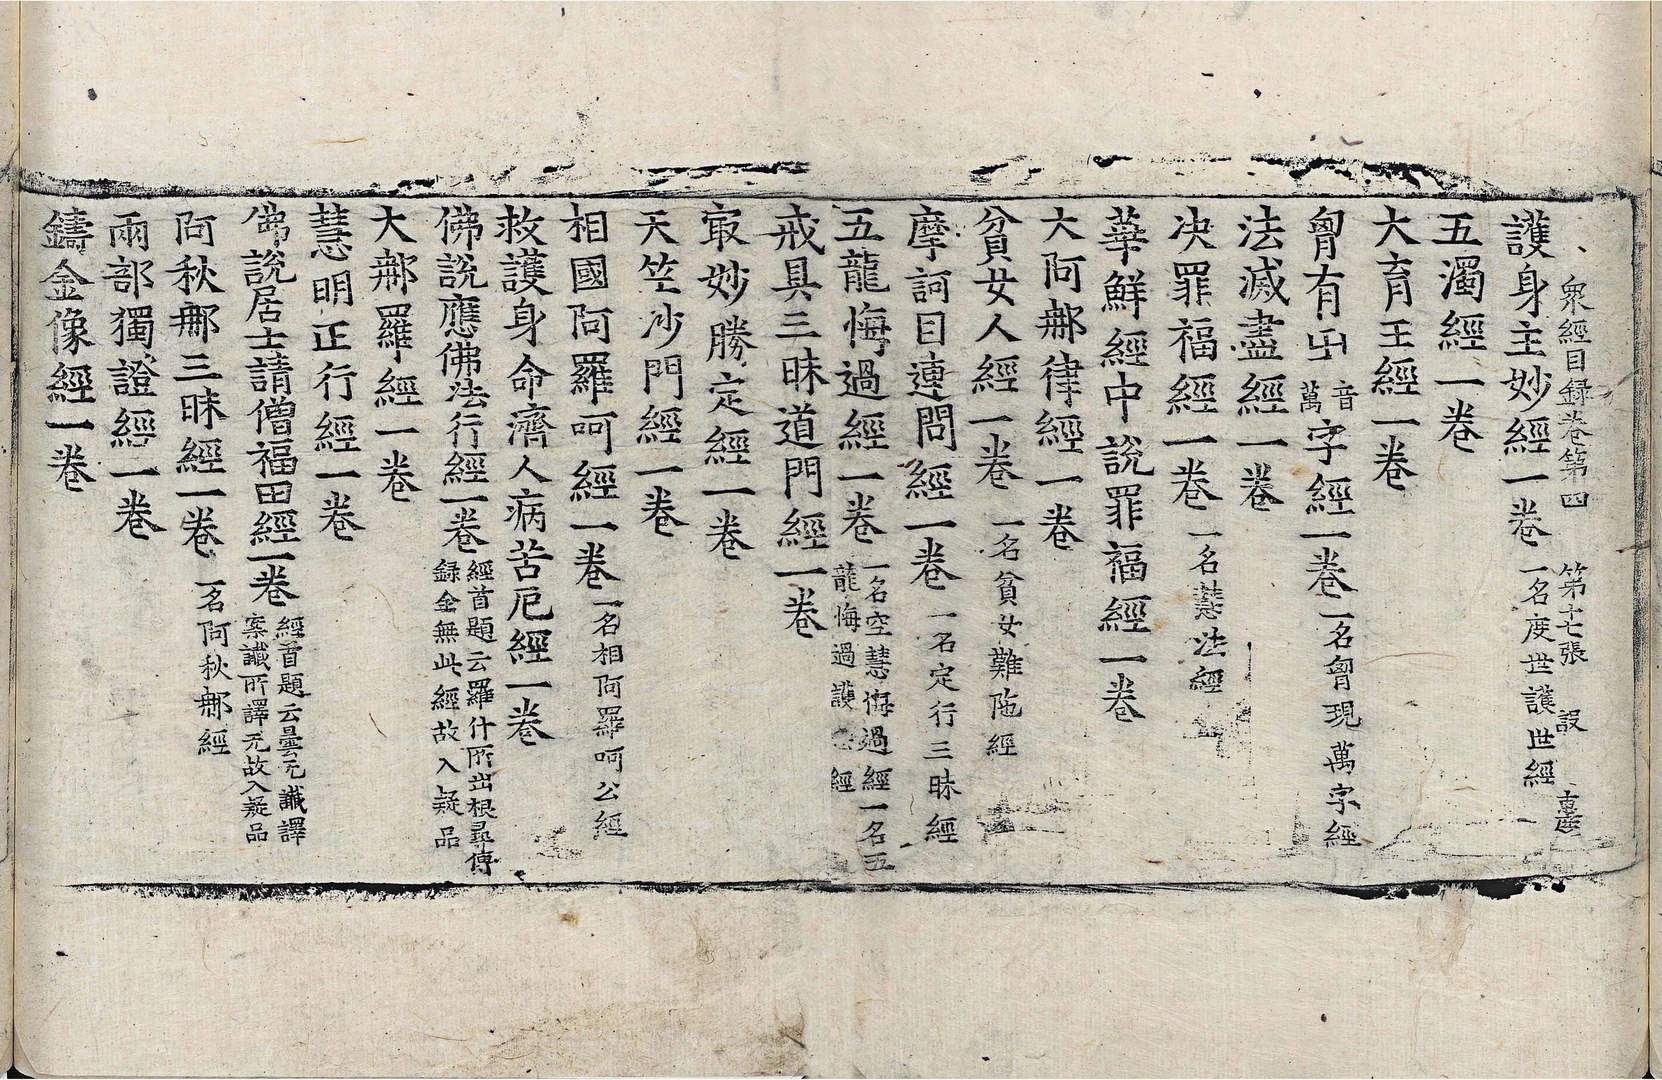 衆經目録卷第四 第十七張 設
護身主妙經一卷 一名度世護世經
五濁經一卷
大育王經一卷
胷有卍 音萬 字經一卷 一名胷現萬字經
法滅盡經一卷
决罪福經一卷 一名慧法經
華鮮經中說罪福經一卷
大阿那律經一卷
貧女人經一卷 一名貧女難陁經
摩訶目連問經一卷 一名定行三昧經
五龍悔過經一卷 一名空慧悔過經一名五
龍悔過護經
戒具三昧道門經一卷
㝡妙勝定經一卷
天竺沙門經一卷
相國阿羅呵經一卷 一名相阿羅呵公經
救護身命濟人病苦厄經一卷
佛說應佛法行經一卷 經首題云羅什所出根尋傳
録全無此經故入疑品
大那羅經一卷
慧明正行經一卷
佛說居士請僧福田經一卷 經首題云曇无讖譯
案讖所譯无故入疑品
阿秋那三昧經一卷 一名阿秋那經
兩部獨證經一卷
鑄金像經一卷